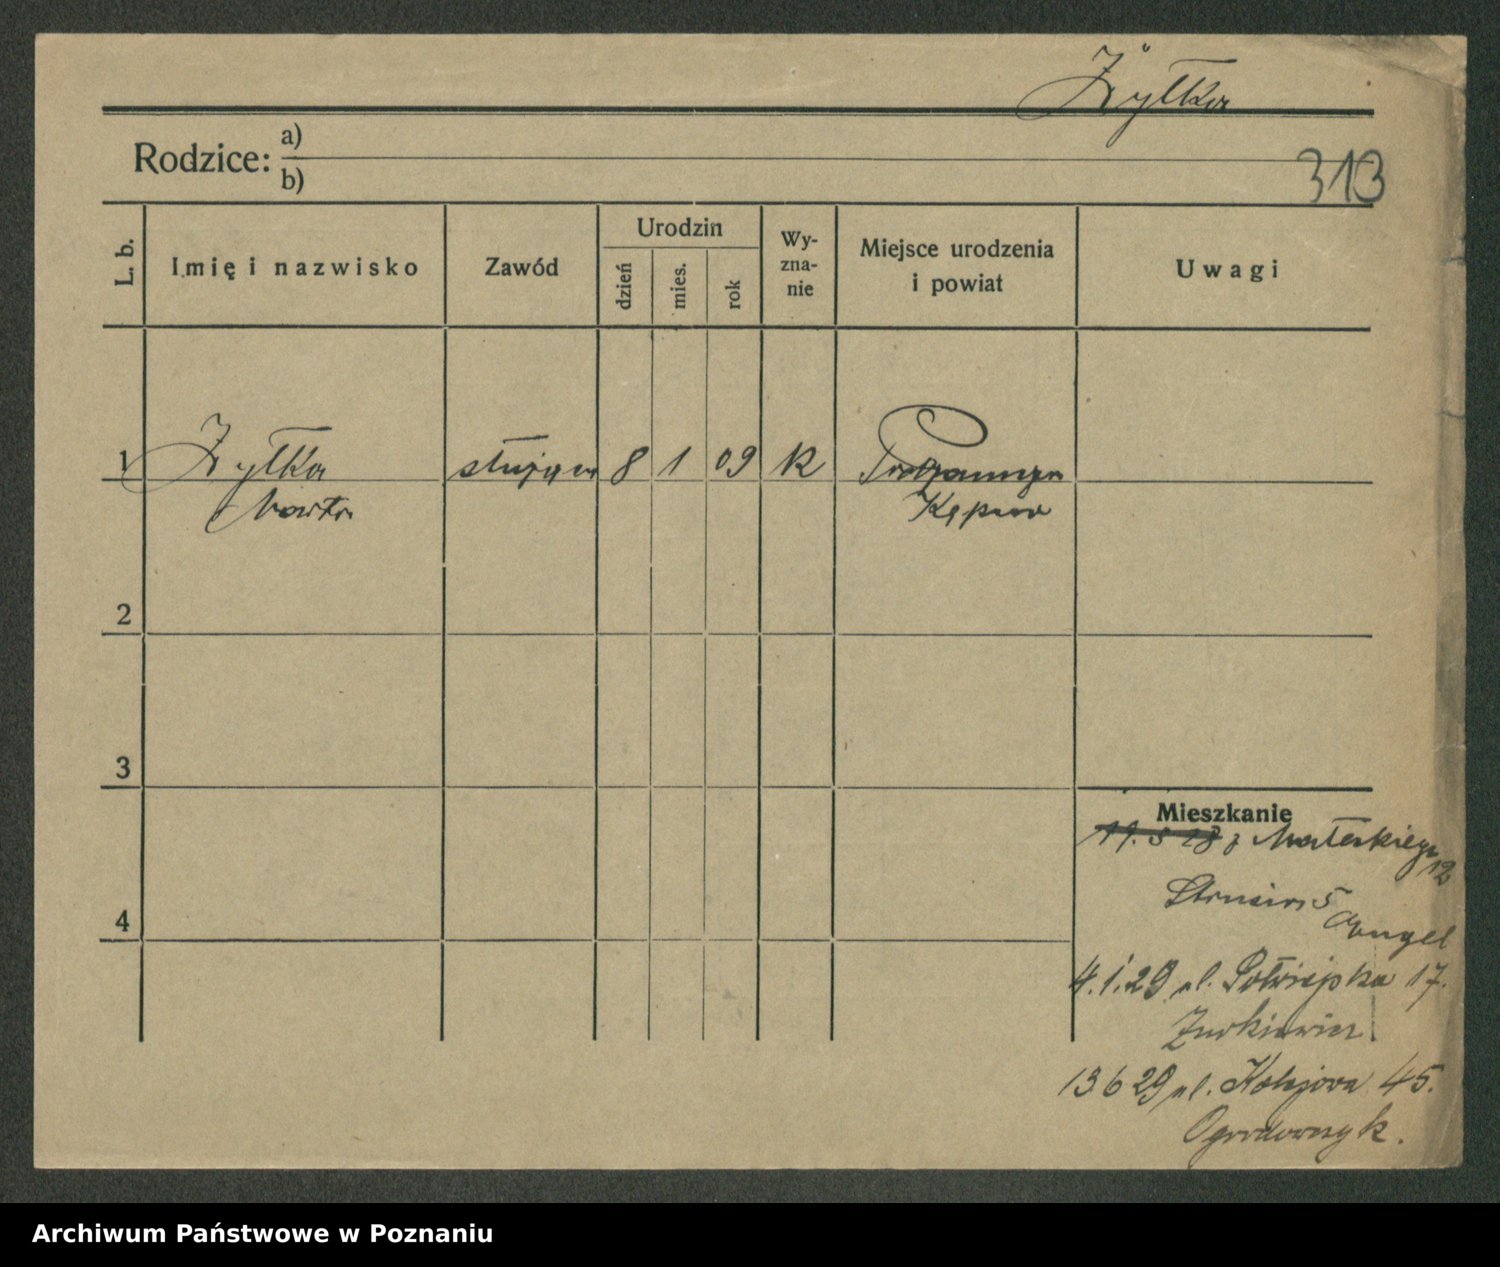 Żytka
Rodzice: a)
b)
313
L. b.
Imię i nazwisko
Zawód
Urodzin
dzień
mies.
rok
Wy-
zna-
nie
Miejsce urodzenia
i powiat
Uwagi
1 Zytka służąca 8 1 09 K
Marta Kępno
2
3
4
Mieszkanie
z Mateskiego
12
Strusia 5
Engel
4.1.29 ul. Półwiejska 17.
Żurkiewicz.
13 6 29 ul. Kolejowa 45.
Ogrodowczyk.
Archiwum Państwowe w Poznaniu